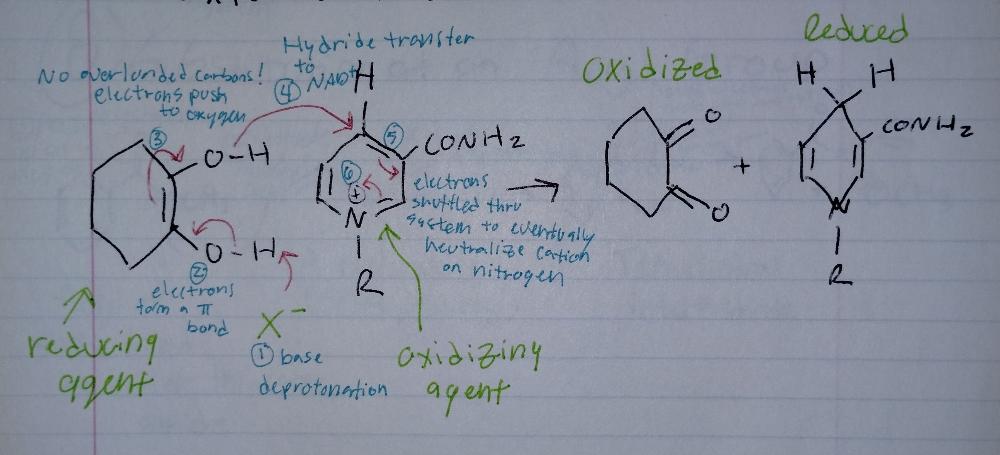 Hydride transfer
to
④ NAD+
No overloaded carbons!
electrons push
to oxygen
③
O-H
O-H
②
electrons
form a π
bond
X⁻
① base
deprotonation
reducing
agent
H
⑤
CONH2
⑥
+
N
R
electrons
shuffled thru
system to eventually
neutralize cation
on nitrogen
oxidiziny
agent
Oxidized
O
O
+
Reduced
H H
CONH2
N
R